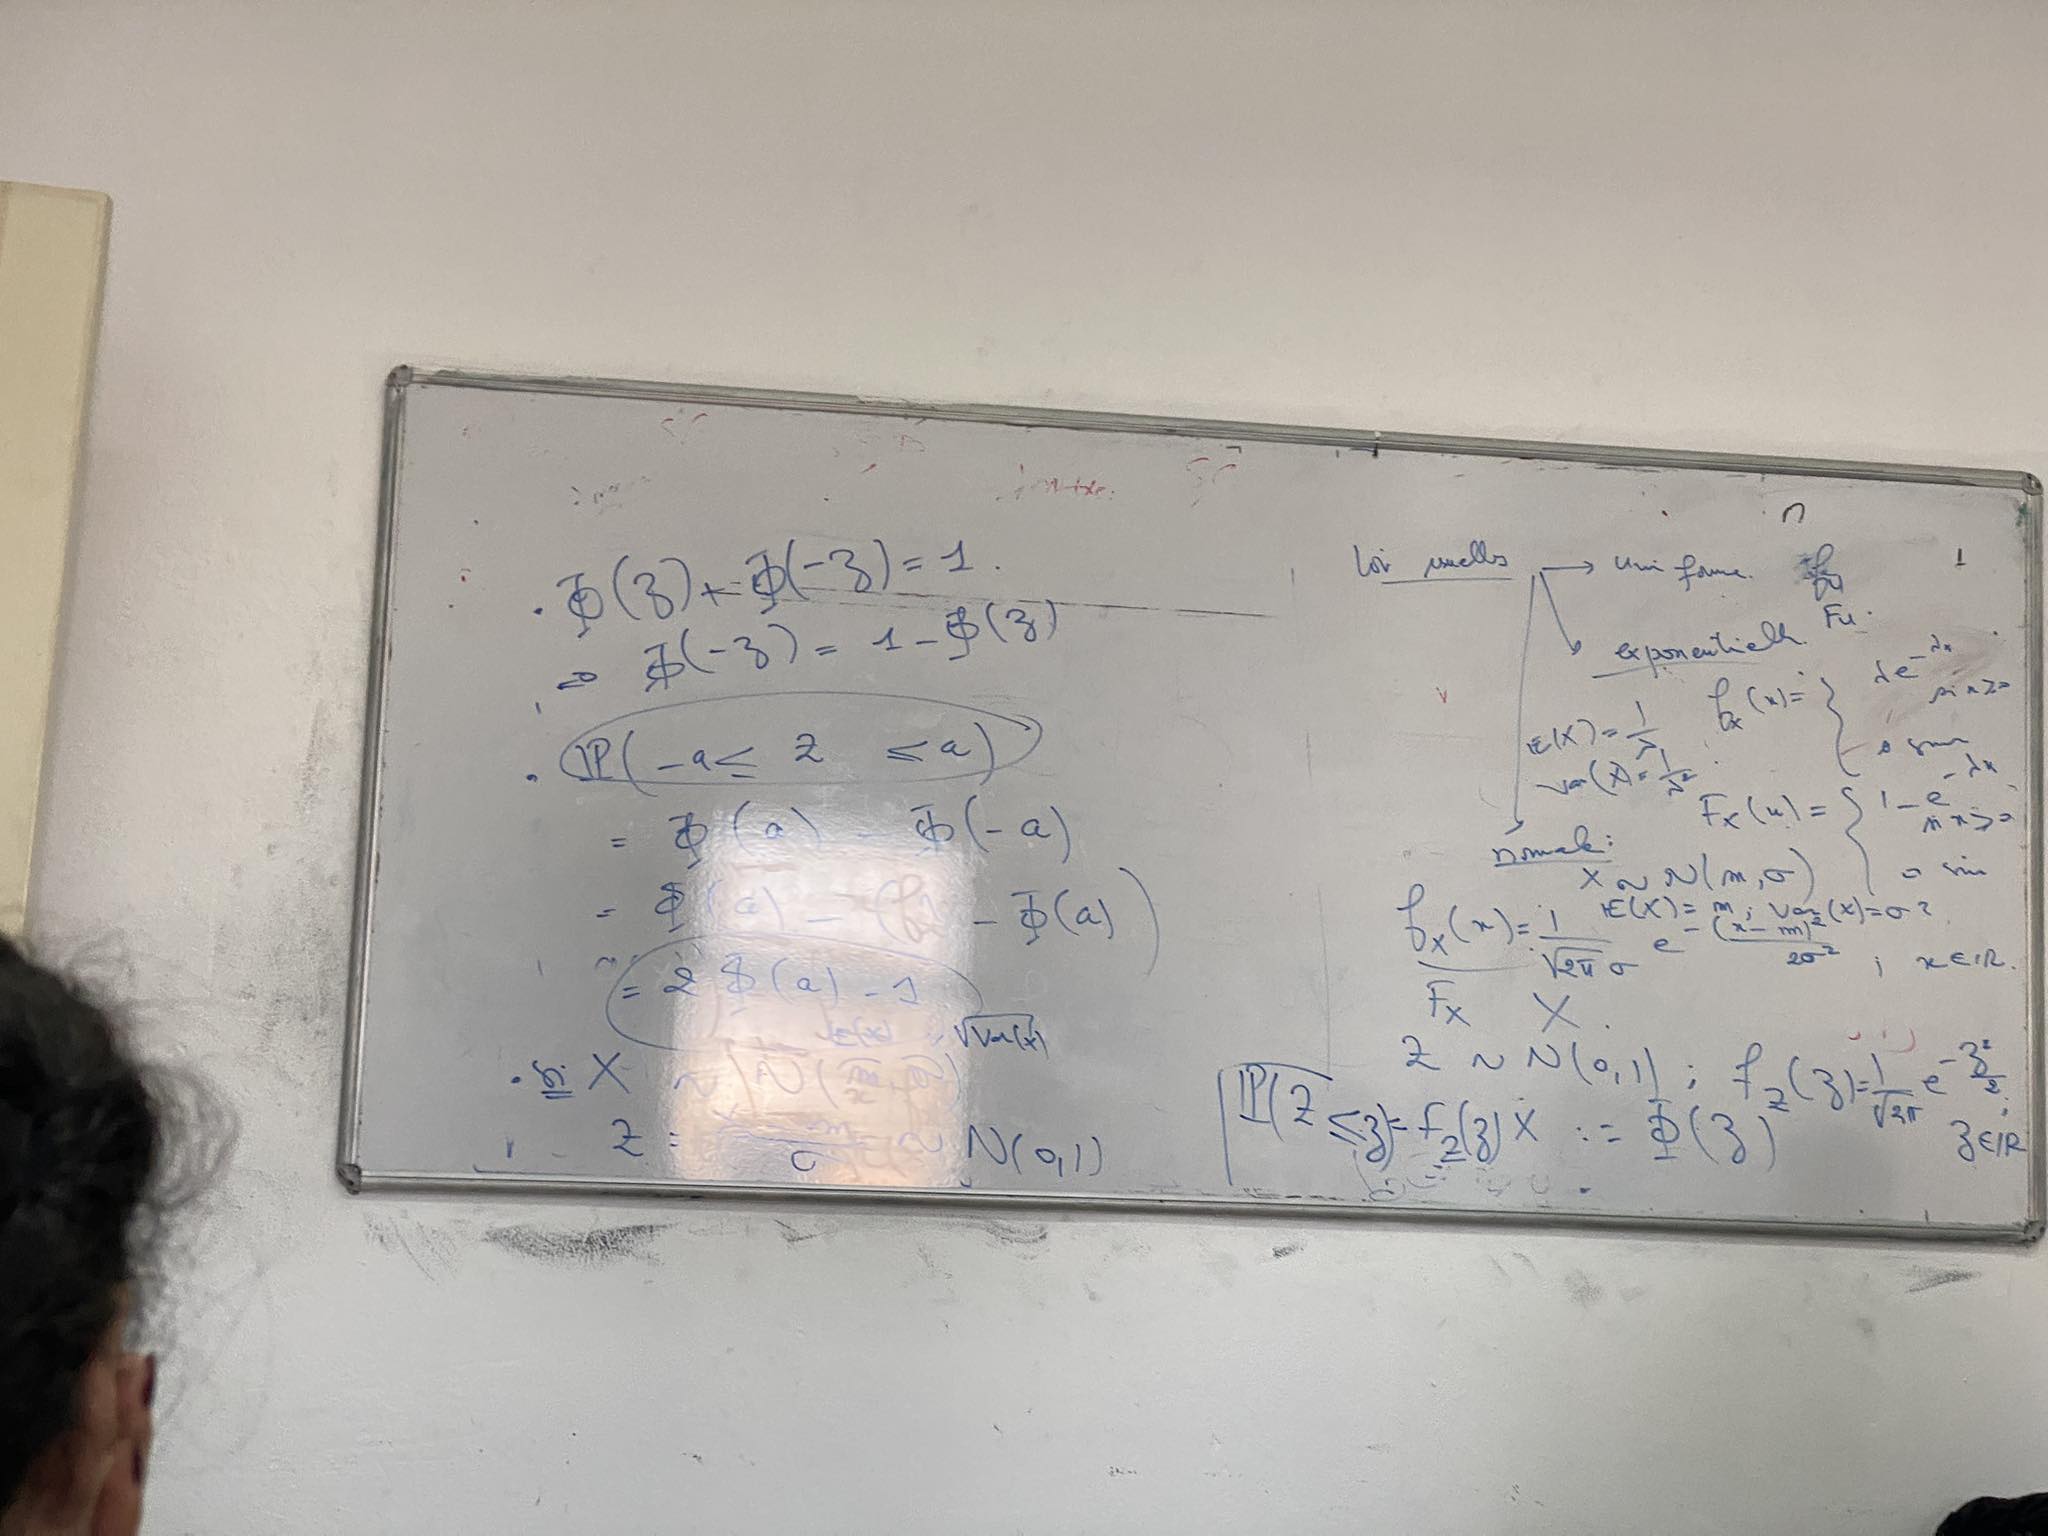 . Φ(z) + Φ(-z) = 1.
⇒ Φ(-z) = 1 - Φ(z)
. ℙ(-a ≤ Z ≤ a)
= Φ(a) - Φ(-a)
= Φ(a) - (1 - Φ(a))
= 2 Φ(a) - 1
E(X) ; √Var(X)
. si X ~ N(m, σ)
Z = (X - m)/σ ~ N(0,1)
loi usuelles → uniforme.
Fu.
exponentielle.
f_X(x) = { λe^{-λx} si x≥0
0 sinon
E(X) = 1/λ
Var(X) = 1/λ²
F_X(x) = { 1 - e^{-λx} si x≥0
0 sinon
normale:
X ~ N(m, σ)
E(X) = m ; Var(X) = σ²
f_X(x) = 1/(√2π σ) e^{-(x-m)²/2σ²} ; x ∈ ℝ.
F_X X.
Z ~ N(0,1) ; f_Z(z) = 1/√2π e^{-z²/2} ; z ∈ ℝ
ℙ(Z ≤ z) = F_Z(z) X := Φ(z)